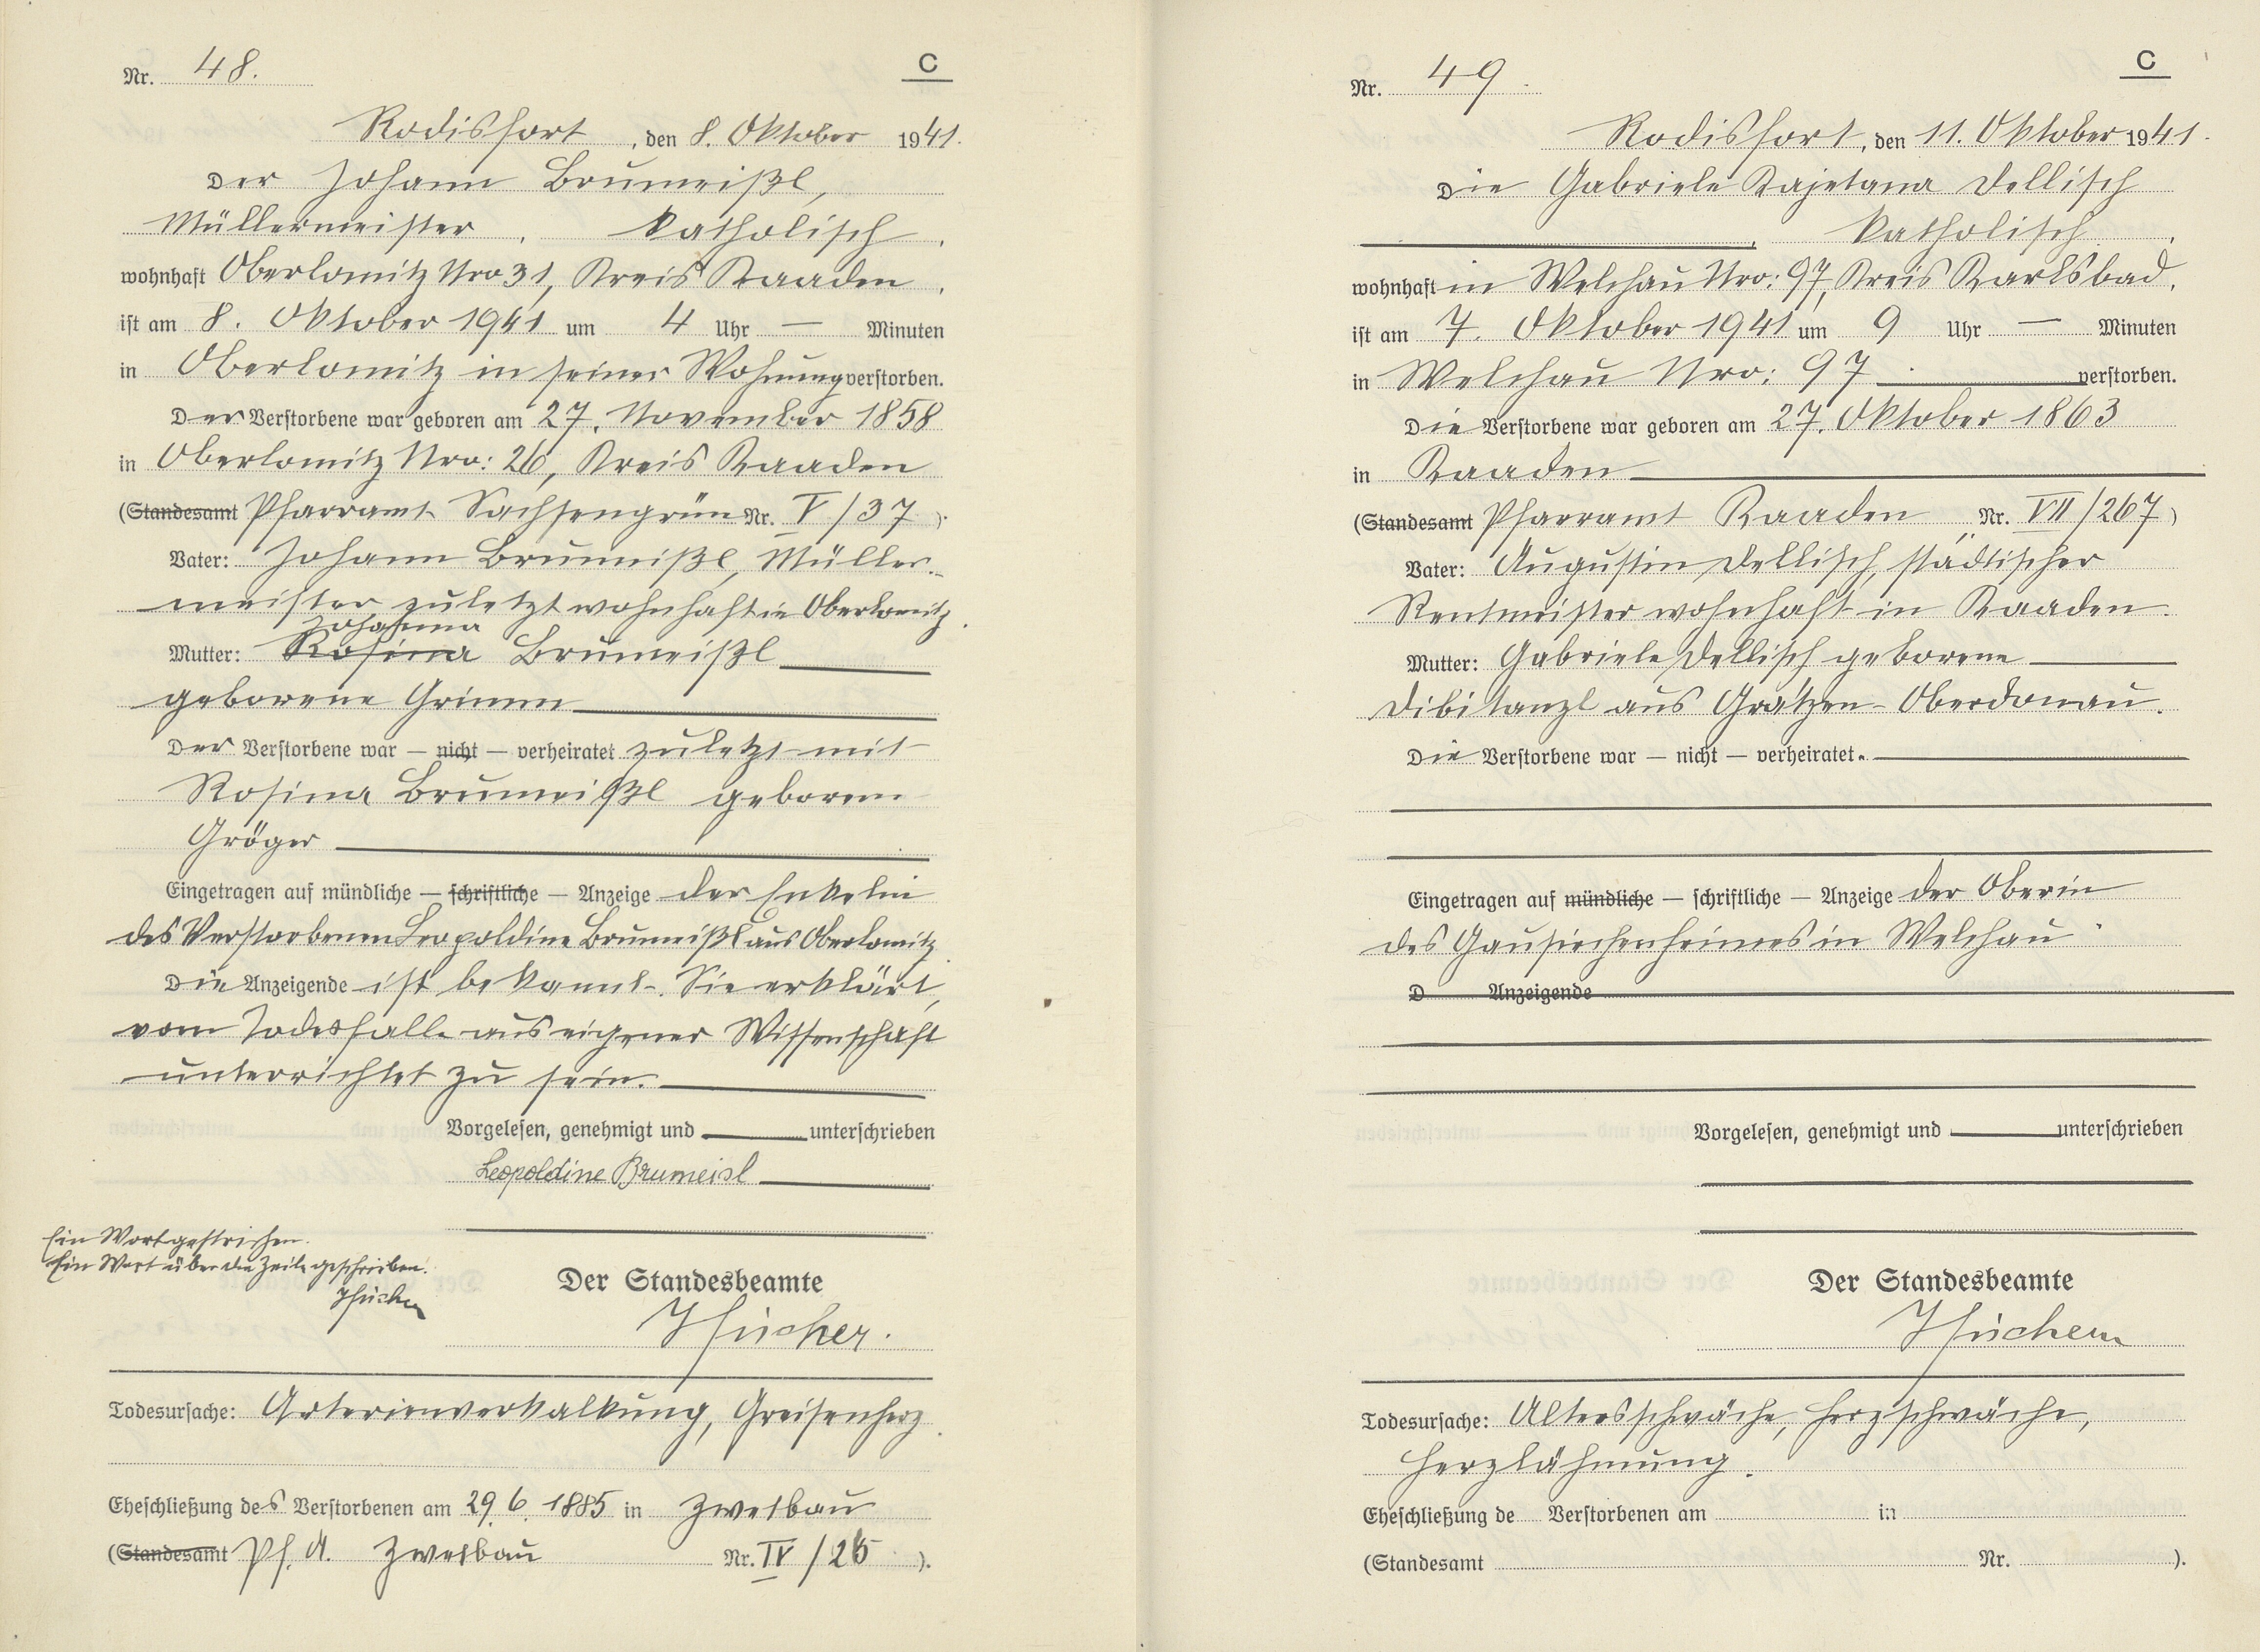 Nr. 48.
C
Rodisfort, den 8. Oktober 1941.
Der Johann Brumeißl,
Müllermeister, katholisch,
wohnhaft Oberlomitz Nro 31, Kreis Kaaden,
ist am 8. Oktober 1941 um 4 Uhr — Minuten
in Oberlomitz in seiner Wohnung verstorben.
Der Verstorbene war geboren am 27. November 1858
in Oberlomitz Nro: 26, Kreis Kaaden
(Standesamt Pfarramt Sachsengrün Nr. V/37).
Vater: Johann Brumeißl, Müller-
meister, zuletzt wohnhaft in Oberlomitz.
Johanna
Mutter: Rosina Brumeißl
geborene Grimm
Der Verstorbene war — nicht — verheiratet zuletzt mit
Rosina Brumeißl geborene
Gröger
Eingetragen auf mündliche — schriftliche — Anzeige der Enkelin
des Verstorbenen Leopoldine Brumeißl aus Oberlomitz.
Die Anzeigende ist bekannt. Sie erklärt,
vom Todesfalle aus eigener Wissenschaft
unterrichtet zu sein.
Vorgelesen, genehmigt und unterschrieben
Leopoldine Brumeisl
Ein Wort gestrichen.
Ein Wort über die Zeile geschrieben.
Der Standesbeamte
Todesursache: Arterienverkalkung, Greisenherz.
Eheschließung des Verstorbenen am 29. 6. 1885 in Zwetbau
(Standesamt Pf. A. Zwetbau Nr. IV/26).
Nr. 49.
C
Rodisfort, den 11. Oktober 1941.
Die Gabriele Kajetana Dellisch
, katholisch,
wohnhaft in Welchau Nro: 97, Kreis Karlsbad,
ist am 7. Oktober 1941 um 9 Uhr — Minuten
in Welchau Nro: 97. verstorben.
Die Verstorbene war geboren am 27. Oktober 1863
in Kaaden
(Standesamt Pfarramt Kaaden Nr. VII/267)
Vater: Augustin Dellisch, städtischer
Rentmeister wohnhaft in Kaaden.
Mutter: Gabriele Dellisch geborene
Dibitanzl aus Grätzen-Oberdonau.
Die Verstorbene war — nicht — verheiratet.
Eingetragen auf mündliche — schriftliche — Anzeige der Oberin
des Gausiechenheimes in Welchau.
D Anzeigende
Vorgelesen, genehmigt und unterschrieben
Der Standesbeamte
Todesursache: Altersschwäche, Herzschwäche,
Herzlähmung.
Eheschließung de Verstorbenen am in
(Standesamt Nr. ).